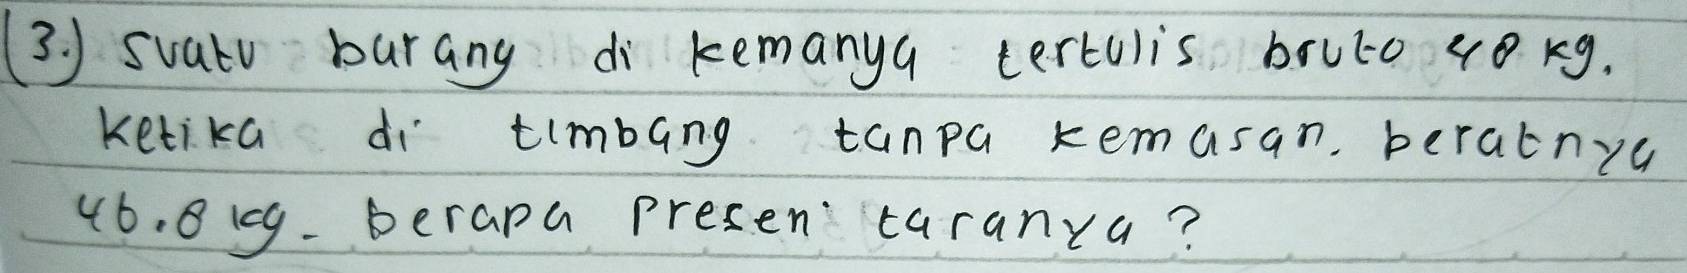 (3.) suatu barang di kemanya tertulis bruto 48 kg.
ketika di timbang tanpa kemasan. beratnya
46.8 kg. berapa presen taranya?